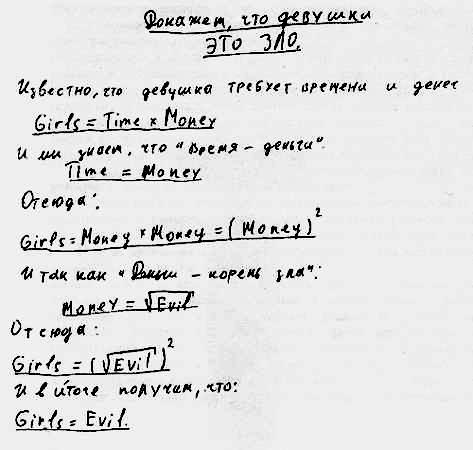 Докажем, что девушки
ЭТО ЗЛО.
Известно, что девушка требует времени и денег
Girls = Time × Money
И мы знаем, что "Время – деньги":
Time = Money
Отсюда:
Girls = Money × Money = (Money)²
И так как "Деньги – корень зла":
Money = √Evil
Отсюда:
Girls = (√Evil)²
И в итоге получим, что:
Girls = Evil.